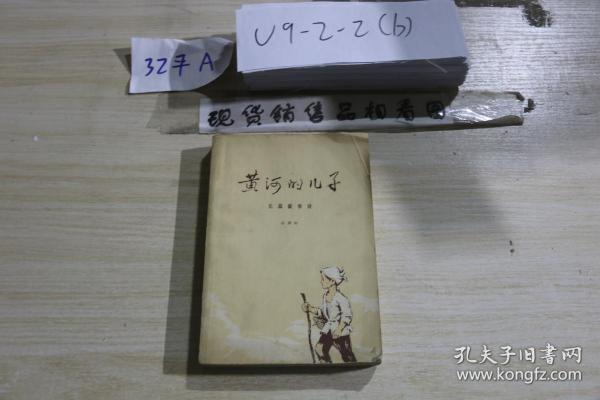 U9-2-2(b)
32平A
现货销售品相看图
黄河的儿子
长篇叙事诗
孔夫子旧书网
www.kongfz.com